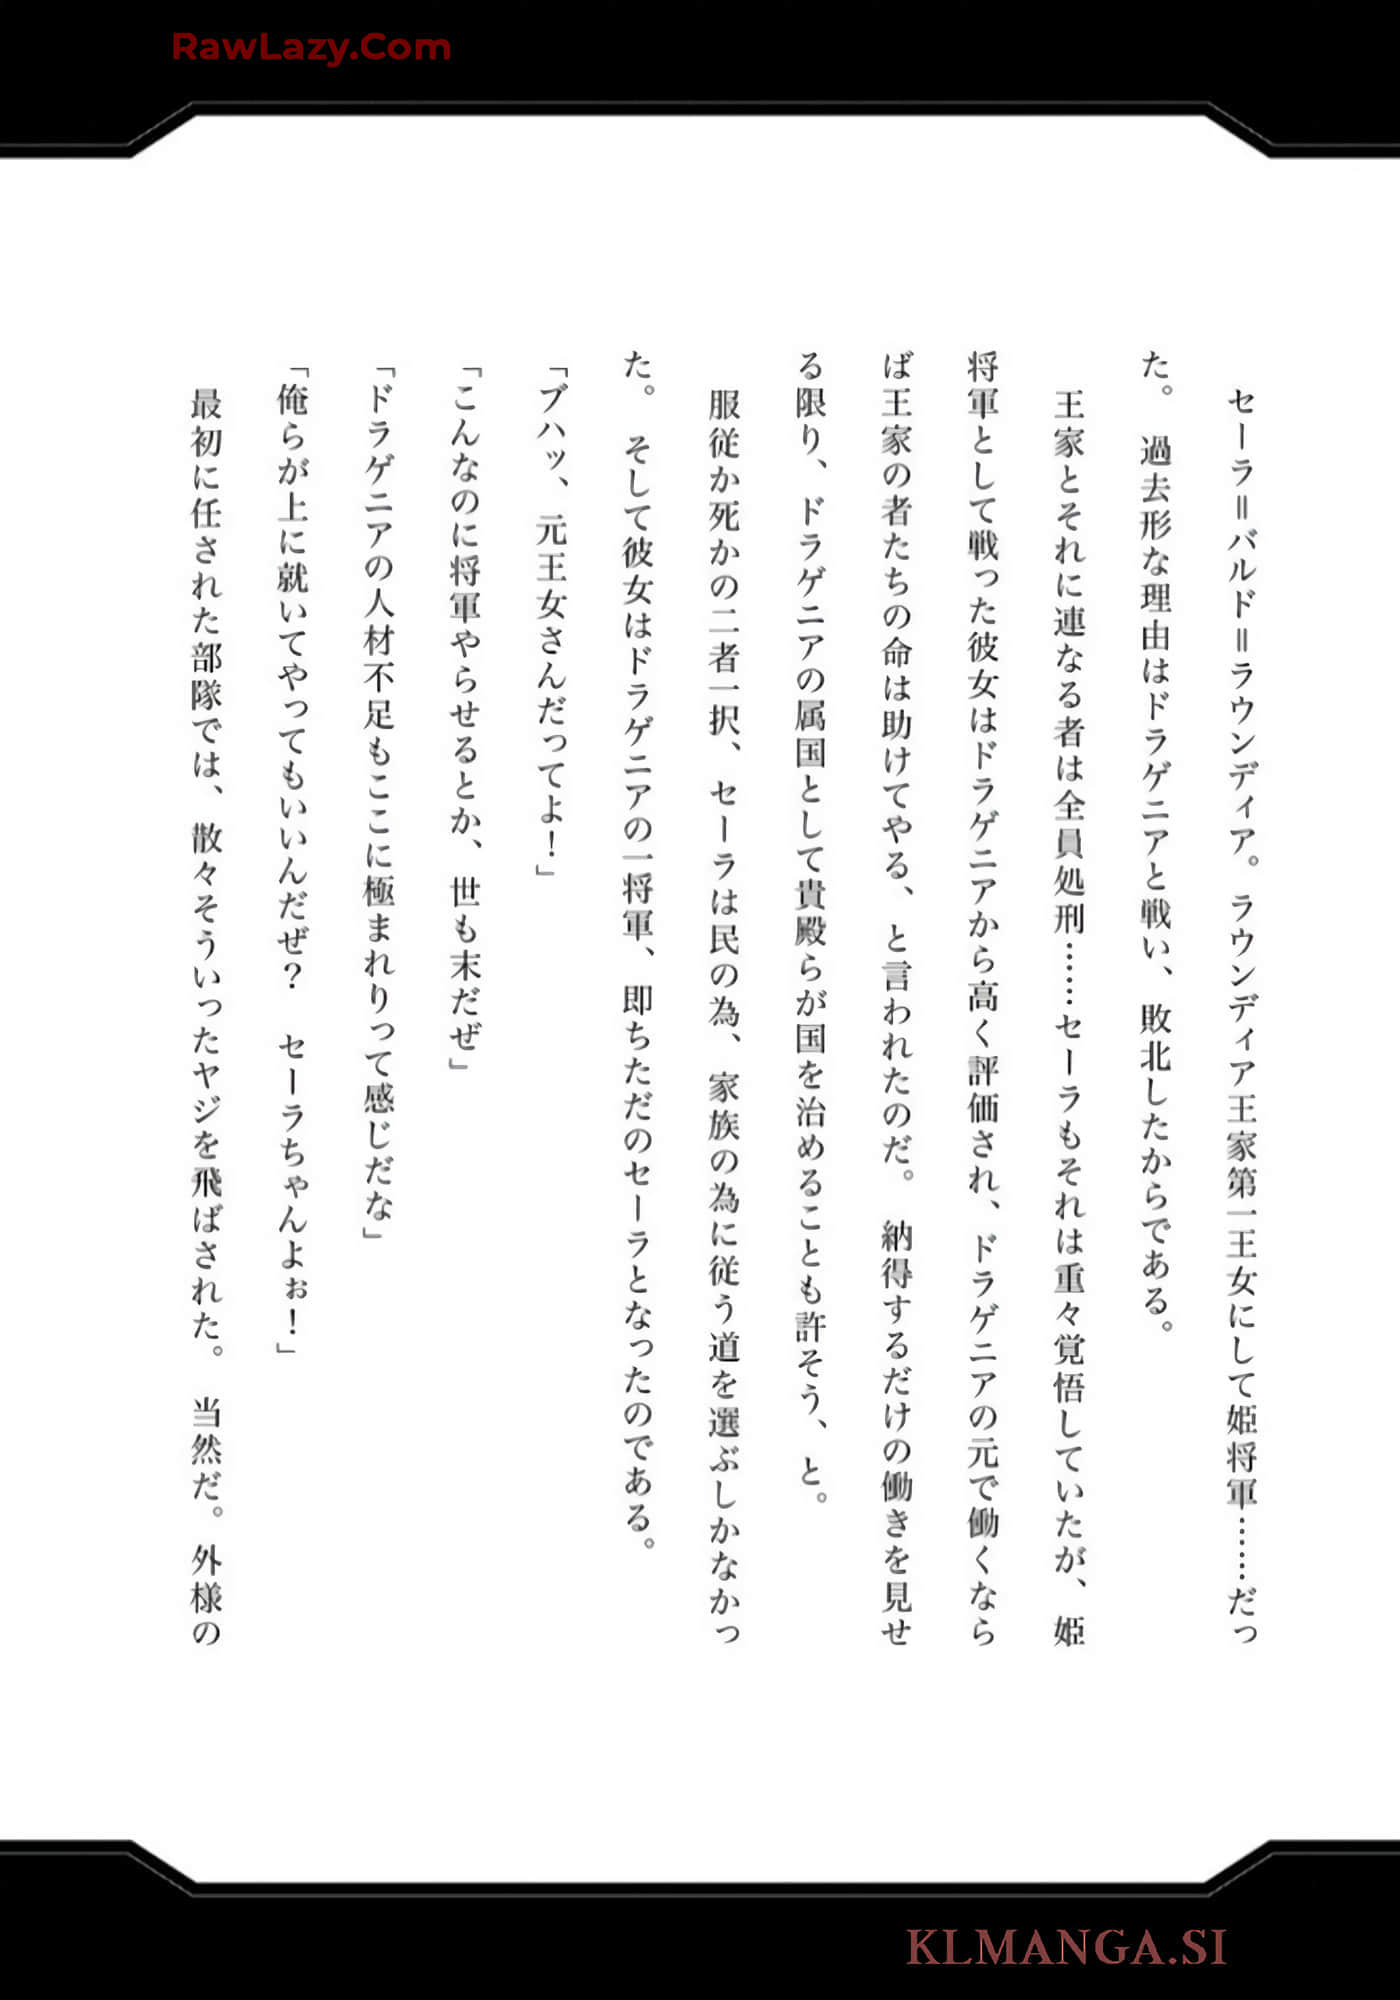 RawLazy.Com
　セーラ＝バルド＝ラウンディア。ラウンディア王家第一王女にして姫将軍……だっ
た。過去形な理由はドラゲニアと戦い、敗北したからである。
　王家とそれに連なる者は全員処刑……セーラもそれは重々覚悟していたが、姫
将軍として戦った彼女はドラゲニアから高く評価され、ドラゲニアの元で働くなら
ば王家の者たちの命は助けてやる、と言われたのだ。納得するだけの働きを見せ
る限り、ドラゲニアの属国として貴殿らが国を治めることも許そう、と。
　服従か死かの二者一択、セーラは民の為、家族の為に従う道を選ぶしかなかっ
た。そして彼女はドラゲニアの一将軍、即ちただのセーラとなったのである。
「ブハッ、元王女さんだってよ！」
「こんなのに将軍やらせるとか、世も末だぜ」
「ドラゲニアの人材不足もここに極まれりって感じだな」
「俺らが上に就いてやってもいいんだぜ？　セーラちゃんよぉ！」
　最初に任された部隊では、散々そういったヤジを飛ばされた。当然だ。外様の
KLMANGA.SI